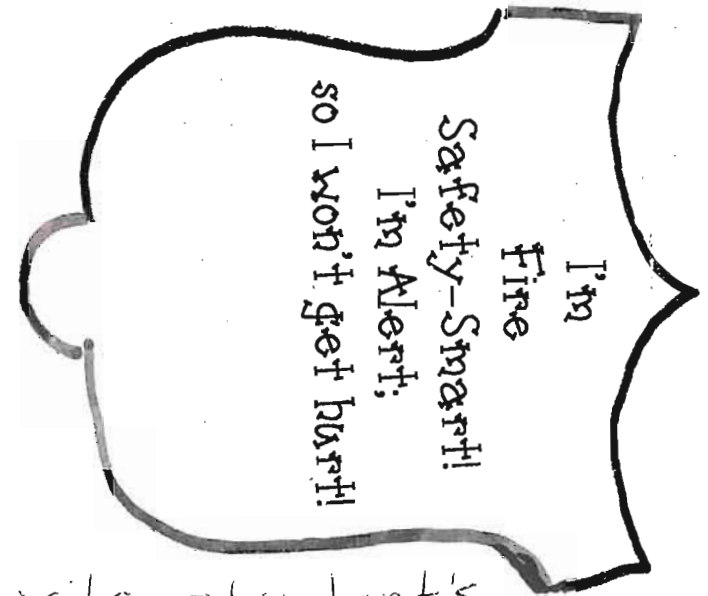 I'm
Fire
Safety-Smart!
I'm Alert;
so I won't get hurt!